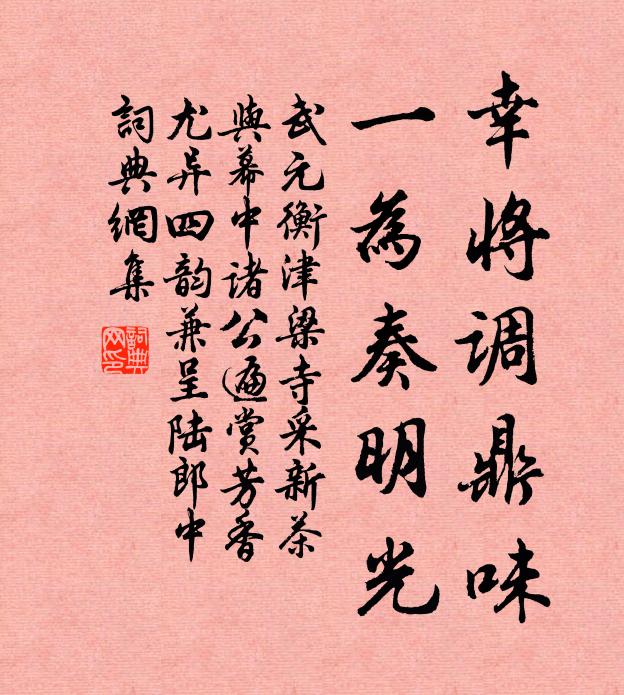 幸将调鼎味
一為奏明光
武元衡津梁寺采新茶
與幕中诸公遍赏芳香
尤异四韵兼呈陆郎中
詞典網集
詞典网印